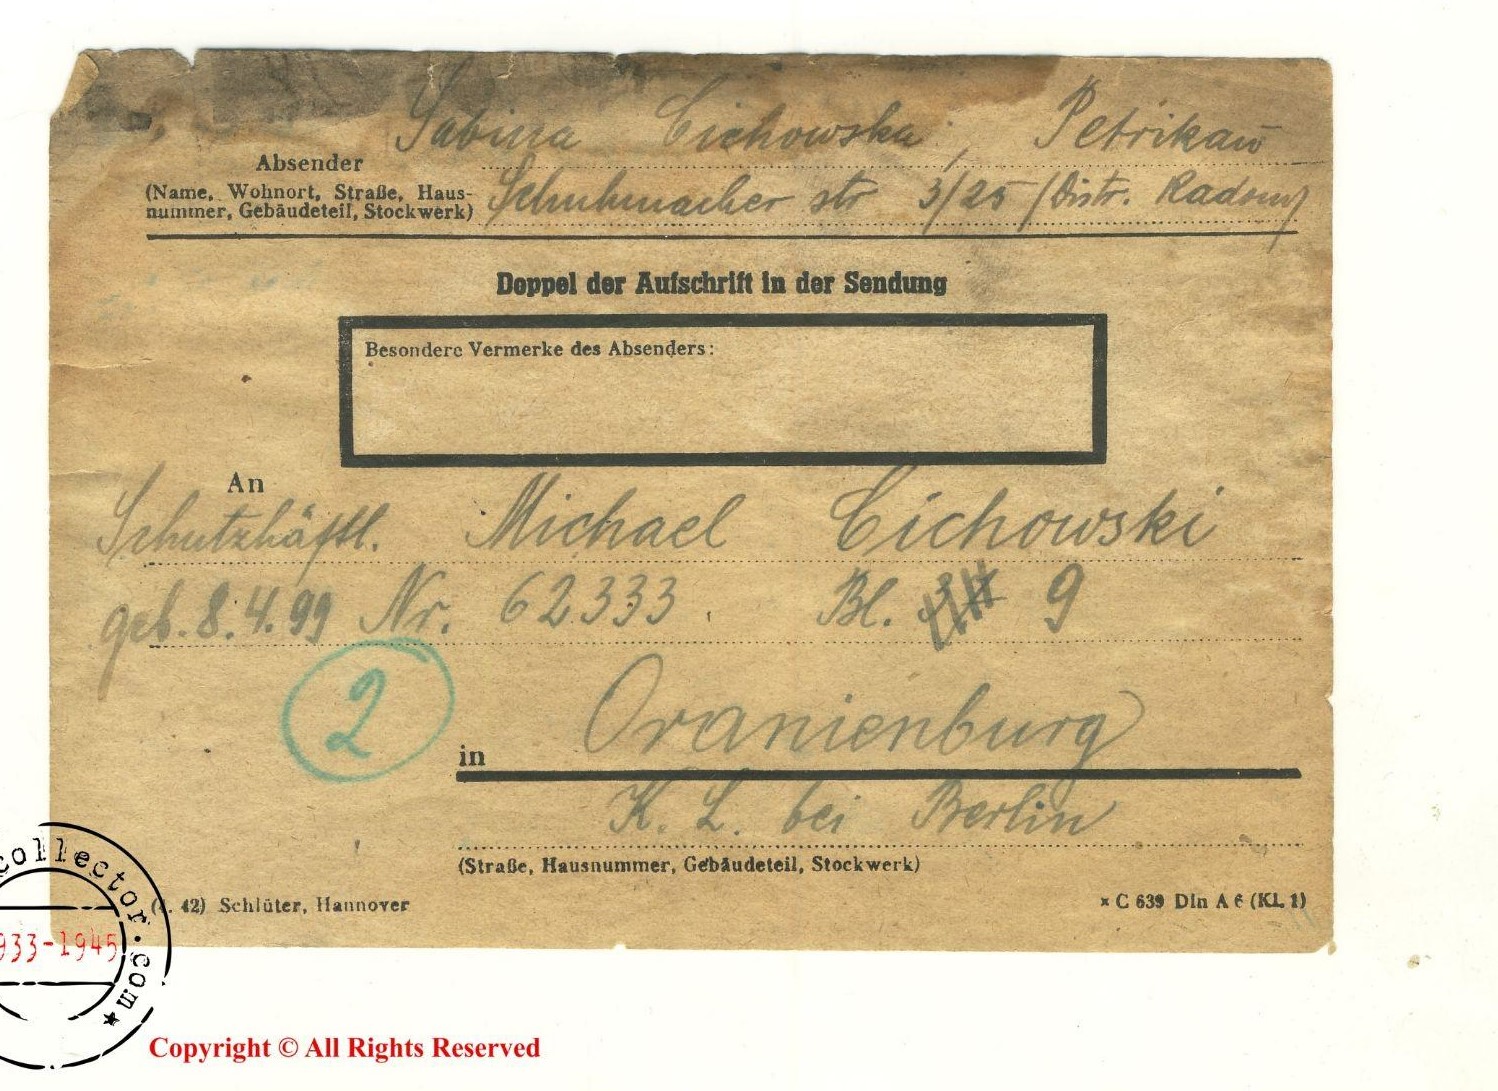 Sabina Cichowska, Petrikau
Absender
(Name, Wohnort, Straße, Haus-
nummer, Gebäudeteil, Stockwerk)
Schuhmacher str 3/25 (Distr. Radom)
Doppel der Aufschrift in der Sendung
Besondere Vermerke des Absenders:
An
Schutzhäftl. Michael Cichowski
geb. 8.4.99 Nr. 62333. Bl. 9
2
in Oranienburg
K. L. bei Berlin
(Straße, Hausnummer, Gebäudeteil, Stockwerk)
42) Schlüter, Hannover
× C 639 Din A 6 (Kl. 1)
collector.com
933-1945
Copyright © All Rights Reserved